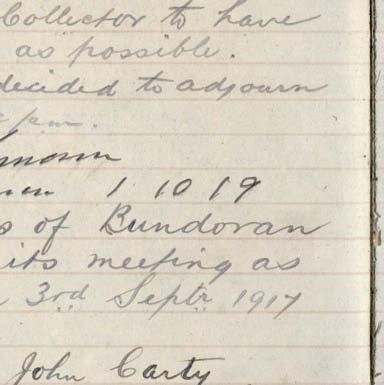 Collector to have
as possible.
decided to adjourn
1 10 19
s of Bundoran
its meeting as
3rd Septr 1917
John Carty